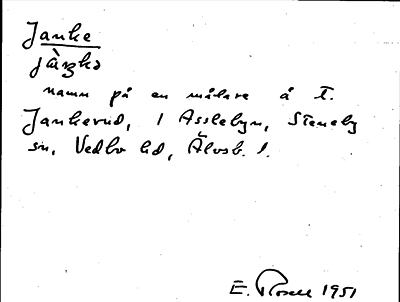 Janke
jàŋkə
namn på en målare å t.
Jankerud, i Asslebyn, Steneby
sn, Vedbo hd, Älvsb. l.
E. Rosell 1951